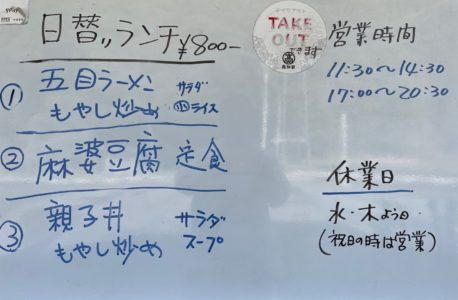 日替ランチ ¥800-
① 五目ラーメン サラダ
もやし炒め 小ライス
② 麻婆豆腐 定食
③ 親子丼 サラダ
もやし炒め スープ
TAKE
OUT
できます
営業時間
11:30〜14:30
17:00〜20:30
休業日
水・木よう日
(祝日の時は営業)